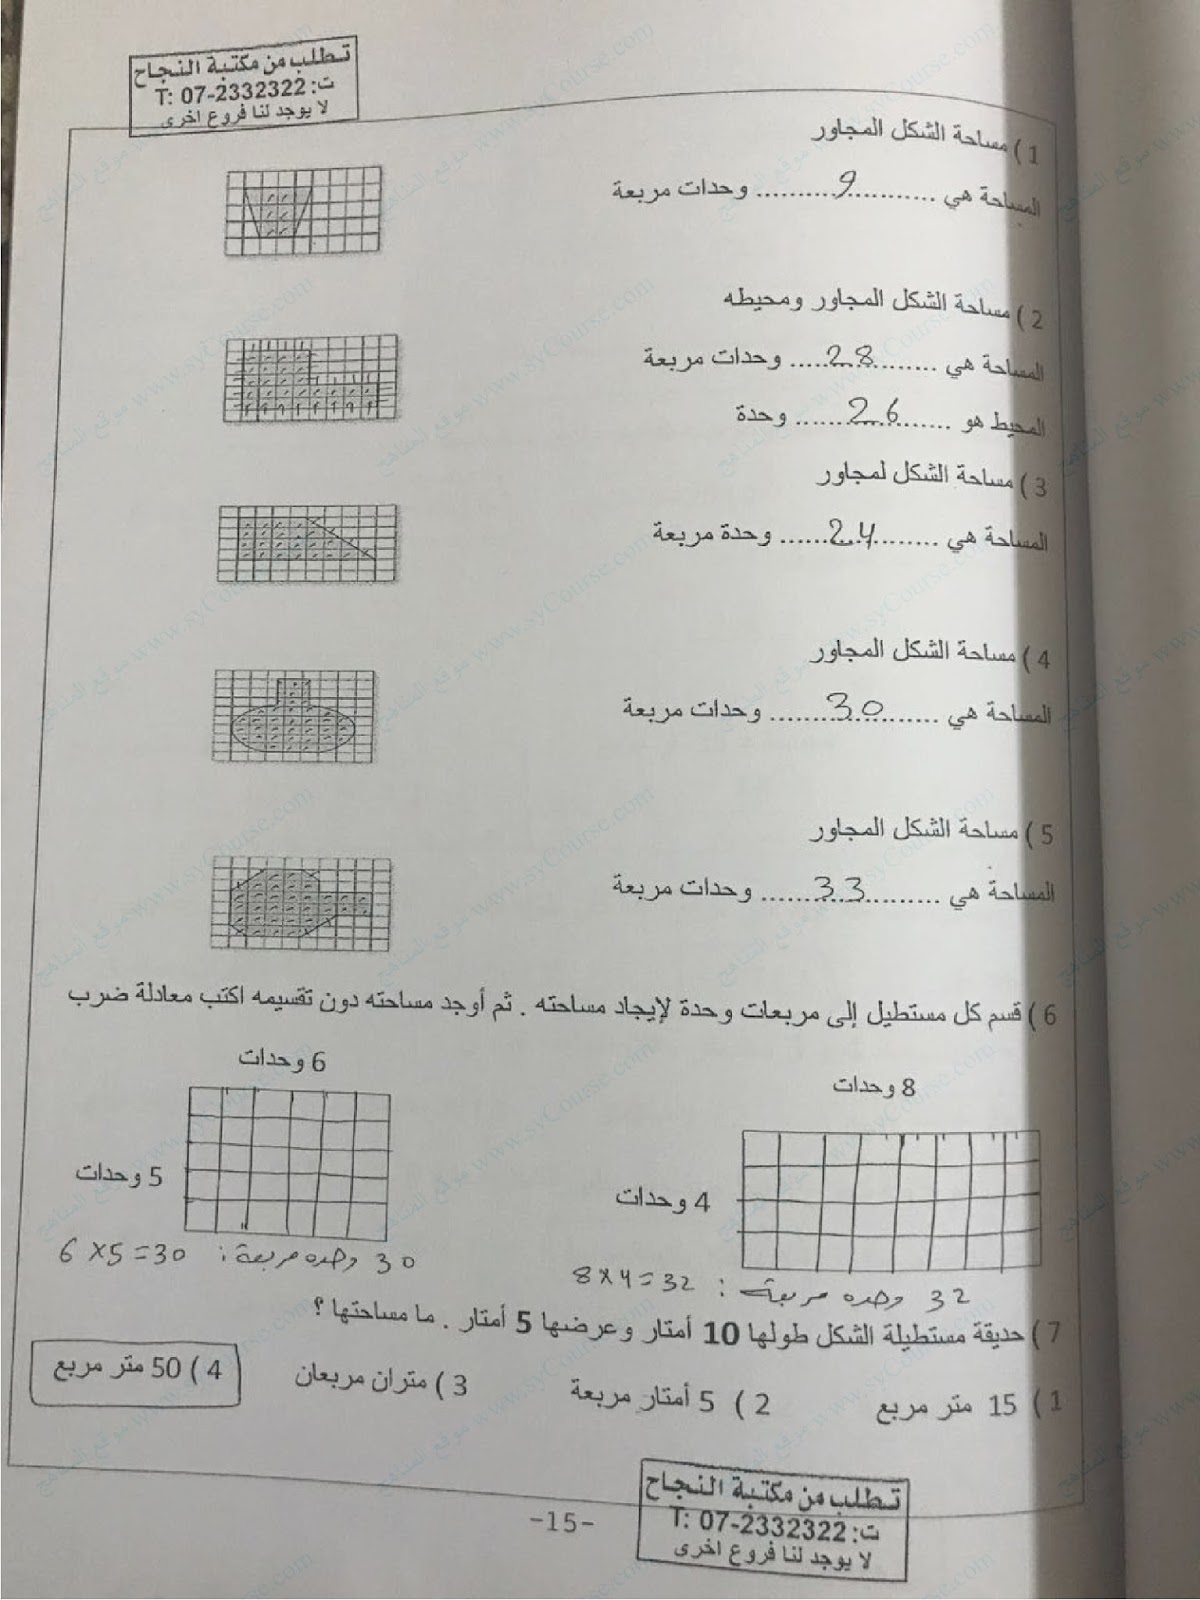 تطلب من مكتبة النجاح
ت: 07-2332322 :T
لا يوجد لنا فروع اخرى
1 ) مساحة الشكل المجاور
المساحة هي ........9........ وحدات مربعة
2 ) مساحة الشكل المجاور ومحيطه
المساحة هي ........28..... وحدات مربعة
المحيط هو ........26........ وحدة
3 ) مساحة الشكل لمجاور
المساحة هي ........24...... وحدة مربعة
4 ) مساحة الشكل المجاور
المساحة هي ........30........ وحدات مربعة
5 ) مساحة الشكل المجاور
المساحة هي ........33...... وحدات مربعة
6 ) قسم كل مستطيل إلى مربعات وحدة لإيجاد مساحته . ثم أوجد مساحته دون تقسيمه اكتب معادلة ضرب
8 وحدات
6 وحدات
4 وحدات
5 وحدات
32 وحده مربعة : 8×4=32
30 وحده مربعة : 6×5=30
7 ) حديقة مستطيلة الشكل طولها 10 أمتار وعرضها 5 أمتار . ما مساحتها ؟
1 ) 15 متر مربع
2 ) 5 أمتار مربعة
3 ) متران مربعان
4 ) 50 متر مربع
تطلب من مكتبة النجاح
ت: 07-2332322 :T
لا يوجد لنا فروع اخرى
-15-
موقع المناهج www.syCourse.com